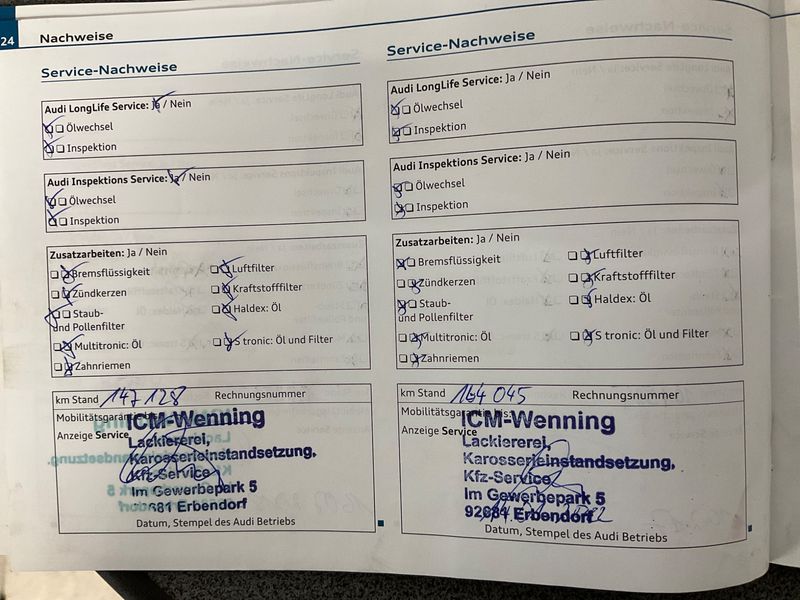 24
Nachweise
Service-Nachweise
Audi LongLife Service: Ja / Nein
Ölwechsel
Inspektion
Audi Inspektions Service: Ja / Nein
Ölwechsel
Inspektion
Zusatzarbeiten: Ja / Nein
Bremsflüssigkeit
Luftfilter
Zündkerzen
Kraftstofffilter
Staub-
und Pollenfilter
Haldex: Öl
Multitronic: Öl
S tronic: Öl und Filter
Zahnriemen
km Stand 147 128 Rechnungsnummer
Mobilitätsgarantie bis:
Anzeige Service
ICM-Wenning
Lackiererei,
Karosserieinstandsetzung,
Kfz-Service
Im Gewerbepark 5
92681 Erbendorf
Datum, Stempel des Audi Betriebs
Service-Nachweise
Audi LongLife Service: Ja / Nein
Ölwechsel
Inspektion
Audi Inspektions Service: Ja / Nein
Ölwechsel
Inspektion
Zusatzarbeiten: Ja / Nein
Bremsflüssigkeit
Luftfilter
Zündkerzen
Kraftstofffilter
Staub-
und Pollenfilter
Haldex: Öl
Multitronic: Öl
S tronic: Öl und Filter
Zahnriemen
km Stand 164 045 Rechnungsnummer
Mobilitätsgarantie bis:
Anzeige Service
ICM-Wenning
Lackiererei,
Karosserieinstandsetzung,
Kfz-Service
Im Gewerbepark 5
92681 Erbendorf
Datum, Stempel des Audi Betriebs